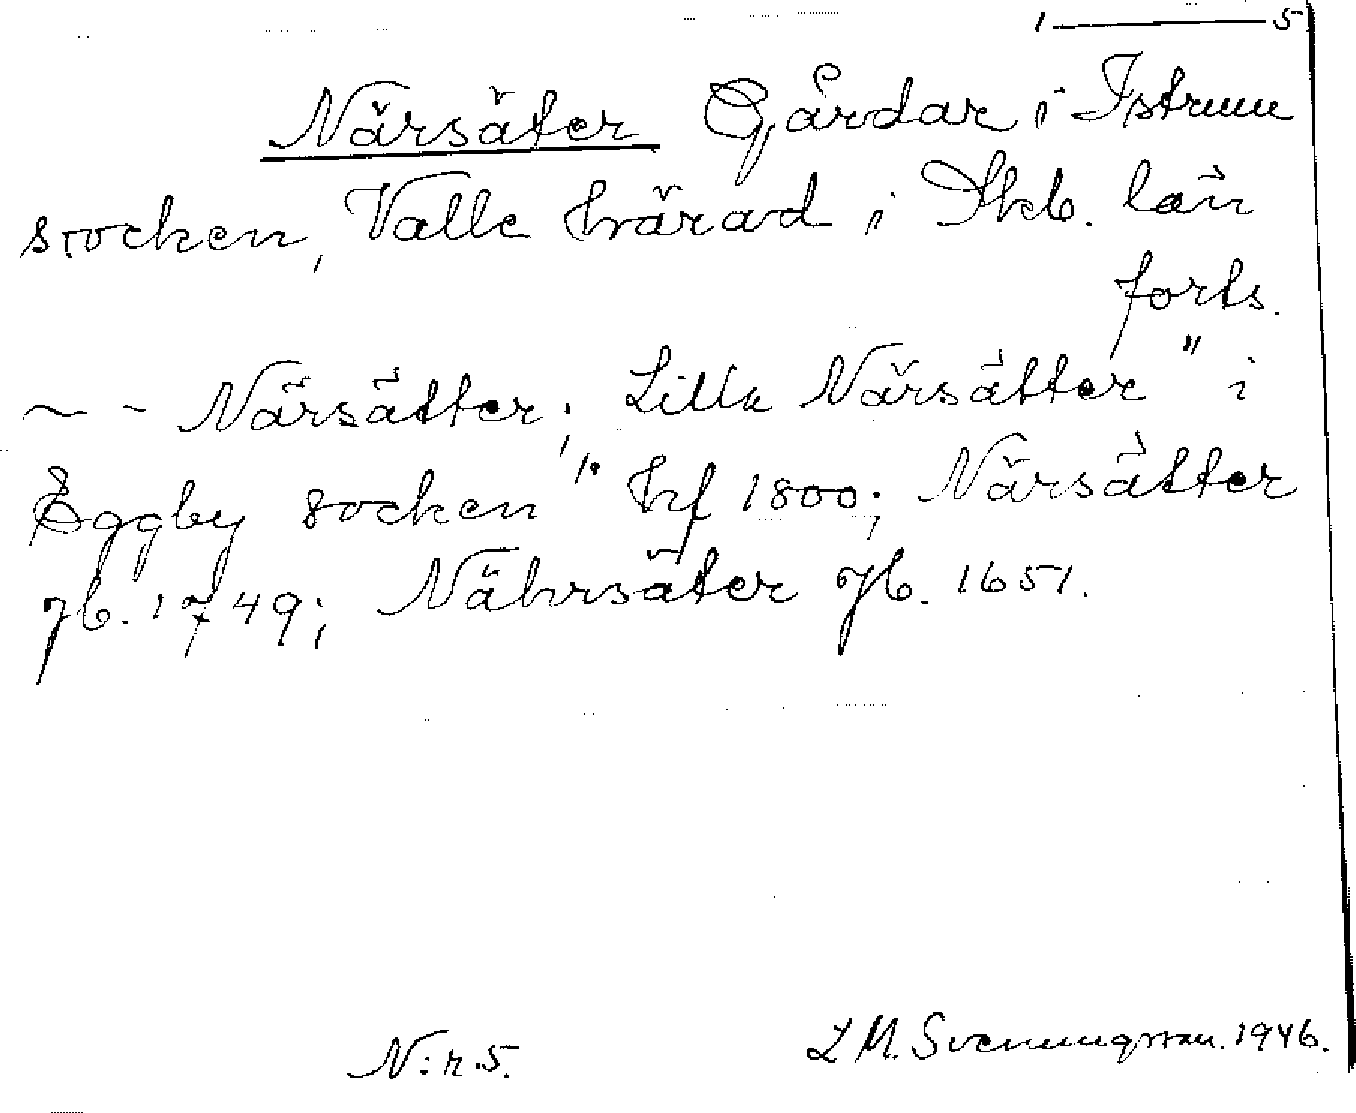 1 — 5
Närsäter Gårdar i Istrum
socken, Valle härad i Skb. län
forts.
~ - Närsätter; Lilla Närsätter " i
Eggby socken " hf 1800; Närsätter
jb. 1749; Nährsäter jb. 1651.
N:r.5. L M. Svenungsson. 1946.